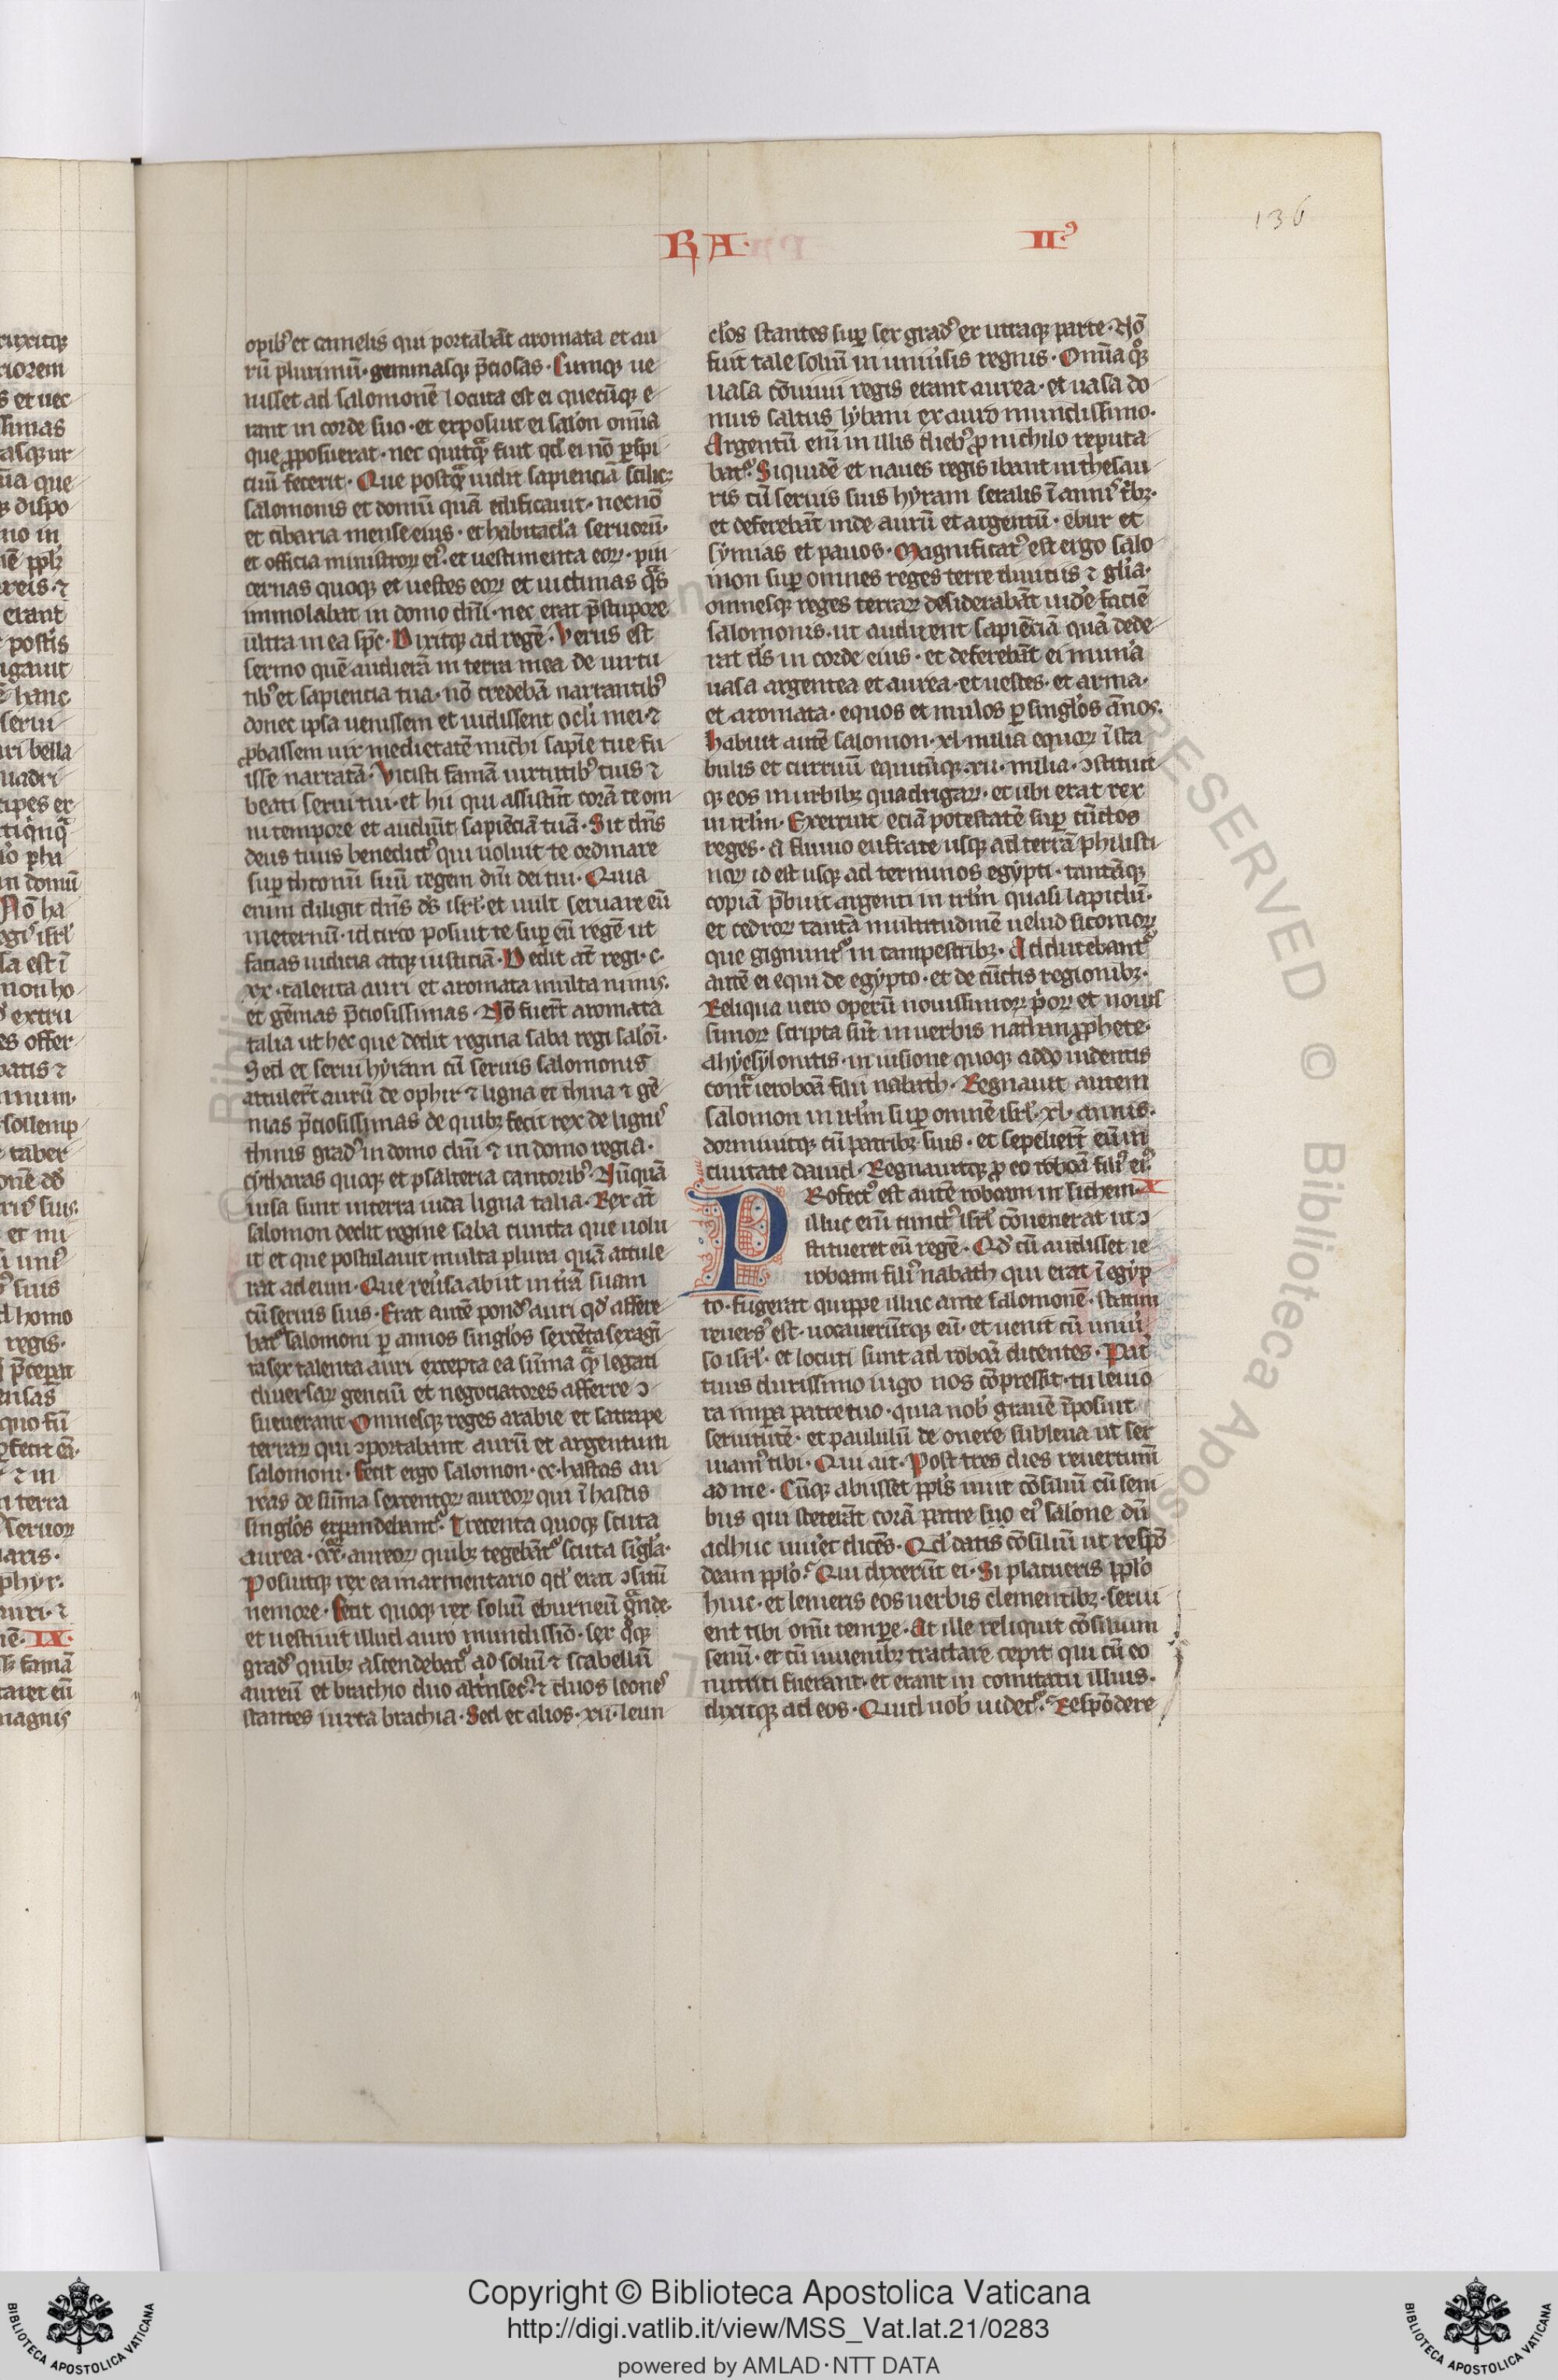 RA.
II⁹
136
opib⁹ et camelis qui portabāt aromata et au
rū plurimū· gemmasq; p̄ciosas· Cumq; ue
nisset ad salomonē locuta est ei quecūq; e
rant in corde suo· et exposuit ei salon om̄ia
que p̄posuerat· nec quicq̄ fuit qd̓ ei nō p̱spi
cuū fecerit· Que postq̄ uidit sapienciā scilic;
salomonis et domū quā edificauit· necnō
et cibaria mense eius· et habitacl̓a seruorū·
et officia ministroꝝ ei⁹· et uestimenta eoꝝ· pin
cernas quoq; et uestes eoꝝ et uictimas q̄s
immolabat in domo dn̄i· nec erat p̄ stupore
ultra in ea sp̄c· Dixitq; ad regē· Verus est
sermo quē audierā in terra mea de uirtu
tib⁹ et sapiencia tua· nō credebā narrantib⁹
donec ipsa uenissem et uidissent ocl̓i mei· ⁊
p̱bassem uix medietatē michi sapīe tue fu
isse narratā· Vicisti famā uirtutib⁹ tuis ⁊
beati serui tui· et hii qui assistūt corā te om
ni tempore et audiūt sapiēciā tuā· Sit dn̄s
deus tuus benedict⁹ qui uoluit te ordinare
sup̱ thronū suū regem dn̄i dei tui· Quia
enim diligit dn̄s ds̄ isrl̓· et uult seruare eū
in eternū· idcirco posuit te sup̱ eū regē ut
facias iudicia atq; iusticiā· Dedit at̄ regi· c·
xx· talenta auri et aromata multa nimis·
et gēmas p̄ciosissimas· Nō fuer̄t aromata
talia ut hec que dedit regina saba regi saloī·
Sed et serui hyram cū seruis salomonis
attuler̄t aurū de ophir ⁊ ligna et thina ⁊ gē
mas p̄ciosissimas de quib; fecit rex de lignis
thinis grad⁹ in domo dn̄i ⁊ in domo regia·
cytharas quoq; et psalteria cantorib⁹· Nūquā
uisa sunt in terra iuda ligna talia· Rex at̄
salomon dedit regine saba cuncta que uolu
it et que postulauit multa plura quā attule
rat ad eum· Que reu̓sa abiit in t̓rā suam
cū seruis suis· Erat autē pond⁹ auri qd̓ affere
bat̓ salomoni p̱ annos singl̓os sexcēta sexagī
ta sex talenta auri excepta ea sūma q̄ legati
diuersaꝝ genciū et negociatores afferre ↄ
sueuerant· Omnesq; reges arabie et satrape
terraꝝ qui ↄportabant aurū et argentum
salomoni· Fecit ergo salomon· cc· hastas au
reas de sūma sexcentoꝝ aureoꝝ qui ī hastis
singl̓os expendebant̓· Trecenta quoq; scuta
aurea· ccc̄· aureoꝝ quib; tegebāt̓ scuta sīgl̓a·
Posuitq; rex ea in armentario qd̓ erat ↄsitū
nemore· Fecit quoq; rex soliū eburneū ḡnde·
et uestiuit illud auro mundissīo· sex q̊q;
grad⁹ quib; ascendebat̓ ad soliū ⁊ scabellū
aureū et brachio duo altrīsec⁹· ⁊ duos leones
stantes iuxta brachia· Sed et alios· xii· leun
cl̓os stantes sup̱ sex grad⁹ ex utraq; parte· Nō
fuit tale soliū in uniu̓sis regnis· Om̄ia q̊q;
uasa cōuiuii regis erant aurea· et uasa do
mus saltus lybani ex auro mundissimo·
Argentū eni in illis dieb⁹ p̱ nichilo reputa
bat̓· Siquidē et naues regis ibant in thesau
ris cū seruis suis hyram semlis ī annis tb̓;·
et deferebāt inde aurū et argentū· ebur et
symias et pauos· Magnificat⁹ est ergo salo
mon sup̱ omnes reges terre diuitiis ⁊ gl̓ia·
omnesq; reges terraꝝ desiderabāt uide̓ facie
salomonis· ut audirent sapiēciā quā dede
rat ds̄ in corde eius· et deferebāt ei mun̓a
uasa argentea et aurea· et uestes· et arma·
et aromata· equos et mulos p̱ singl̓os ānos·
Habuit autē salomon· xl· milia equoꝝ ī sta
bulis et curruū equitūq; xii· milia· ↄstituit
q; eos in urbib; quadrigaꝝ· et ubi erat rex
in irl̓m· Exercuit eciā potestatē sup̱ cūctos
reges· a fluuio eufrate usq; ad terrā philisti
noꝝ id est usq; ad terminos egypti· tantāq;
copiā p̄buit argenti in irl̓m quasi lapidū·
et cedroꝝ tantā multitudinē uelud sicomoꝝ
que gignunt̓ in campestrib;· Adducebant̓
autē ei equi de egypto· et de cūctis regionib;·
Reliqua uero operū nouissimoꝝ p̓oꝝ et nouis
simoꝝ scripta sūt in uerbis nathan p̱phete·
ahye sylonitis· in uisione quoq; addo uidentis
cont̄ ieroboā filiū nabath· Regnauit autem
salomon in irl̓m sup̱ omnē isrl̓· xl· annis·
dormiuitq; cū patrib; suis· et sepelier̄t eū in
ciuitate dauid· Regnauitq; p̱ eo roboā fili⁹ ei⁹·
PRofect⁹ est autē roboam in sichem· X
illuc eni cunct⁹ isrl̓ cōuenerat ut ↄ
stitueret eū regē· Qd̓ cū audisset ie
roboam fili⁹ nabath qui erat ī egyp
to· fugerat quippe illuc ante salomonē· statim
reuers⁹ est· uocauerūtq; eū· et uenit cū uniu̓
so isrl̓· et locuti sunt ad roboā dicentes· Pat̓
tuus durissimo iugo nos cōpressit· tu leuio
ra imp̱a patre tuo· quia nob̓ grauē īposuit
seruitutē· et paululū de onere subleua ut ser
uiam⁹ tibi· Qui ait· Post tres dies reuertimī
ad me· Cūq; abiisset ppl̓s iniit cōsiliū cū seni
bus qui steterāt corā patre suo ei⁹ salone dū
adhuc uiu̓et dicēs· Qd̓ datis cōsiliū ut respō
deam ppl̓o· Qui dixerūt ei· Si placueris ppl̓o
huic· et lenieris eos uerbis clementib;· serui
ent tibi omi tempe· At ille reliquit cōsilium
senū· et cū iuuenib; tractare cepit qui cū eo
nutriti fuerant· et erant in comitatu illius·
dixitq; ad eos· Quid uob̓ uidet̓· Respōdere
Copyright © Biblioteca Apostolica Vaticana
http://digi.vatlib.it/view/MSS_Vat.lat.21/0283
powered by AMLAD·NTT DATA
BIBLIOTECA APOSTOLICA VATICANA
BIBLIOTECA APOSTOLICA VATICANA